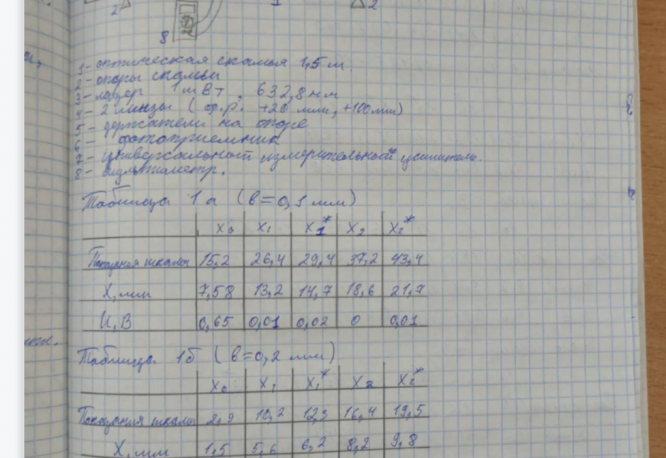 2 1 2
8
- оптическая скамья 1,5 м.
- опоры скамьи
- лазер 1 мВт, 632,8 нм
- 2 линзы (ф.р. +20 мм, +100 мм)
- держатели на опоре
- фотоприемник
- универсальный измерительный усилитель.
- мультиметр.
Таблица 1а (b=0,1 мм)
X₀ X₁ X₁* X₂ X₂*
Показания шкалы 15,2 26,4 29,4 37,2 43,4
X, мм 7,58 13,2 14,7 18,6 21,7
U, В 0,65 0,01 0,02 0 0,01
Таблица 1б (b=0,2 мм)
X₀ X₁ X₁* X₂ X₂*
Показания шкалы 2,9 10,2 12,3 16,4 19,5
X, мм 1,5 5,6 6,2 8,2 9,8